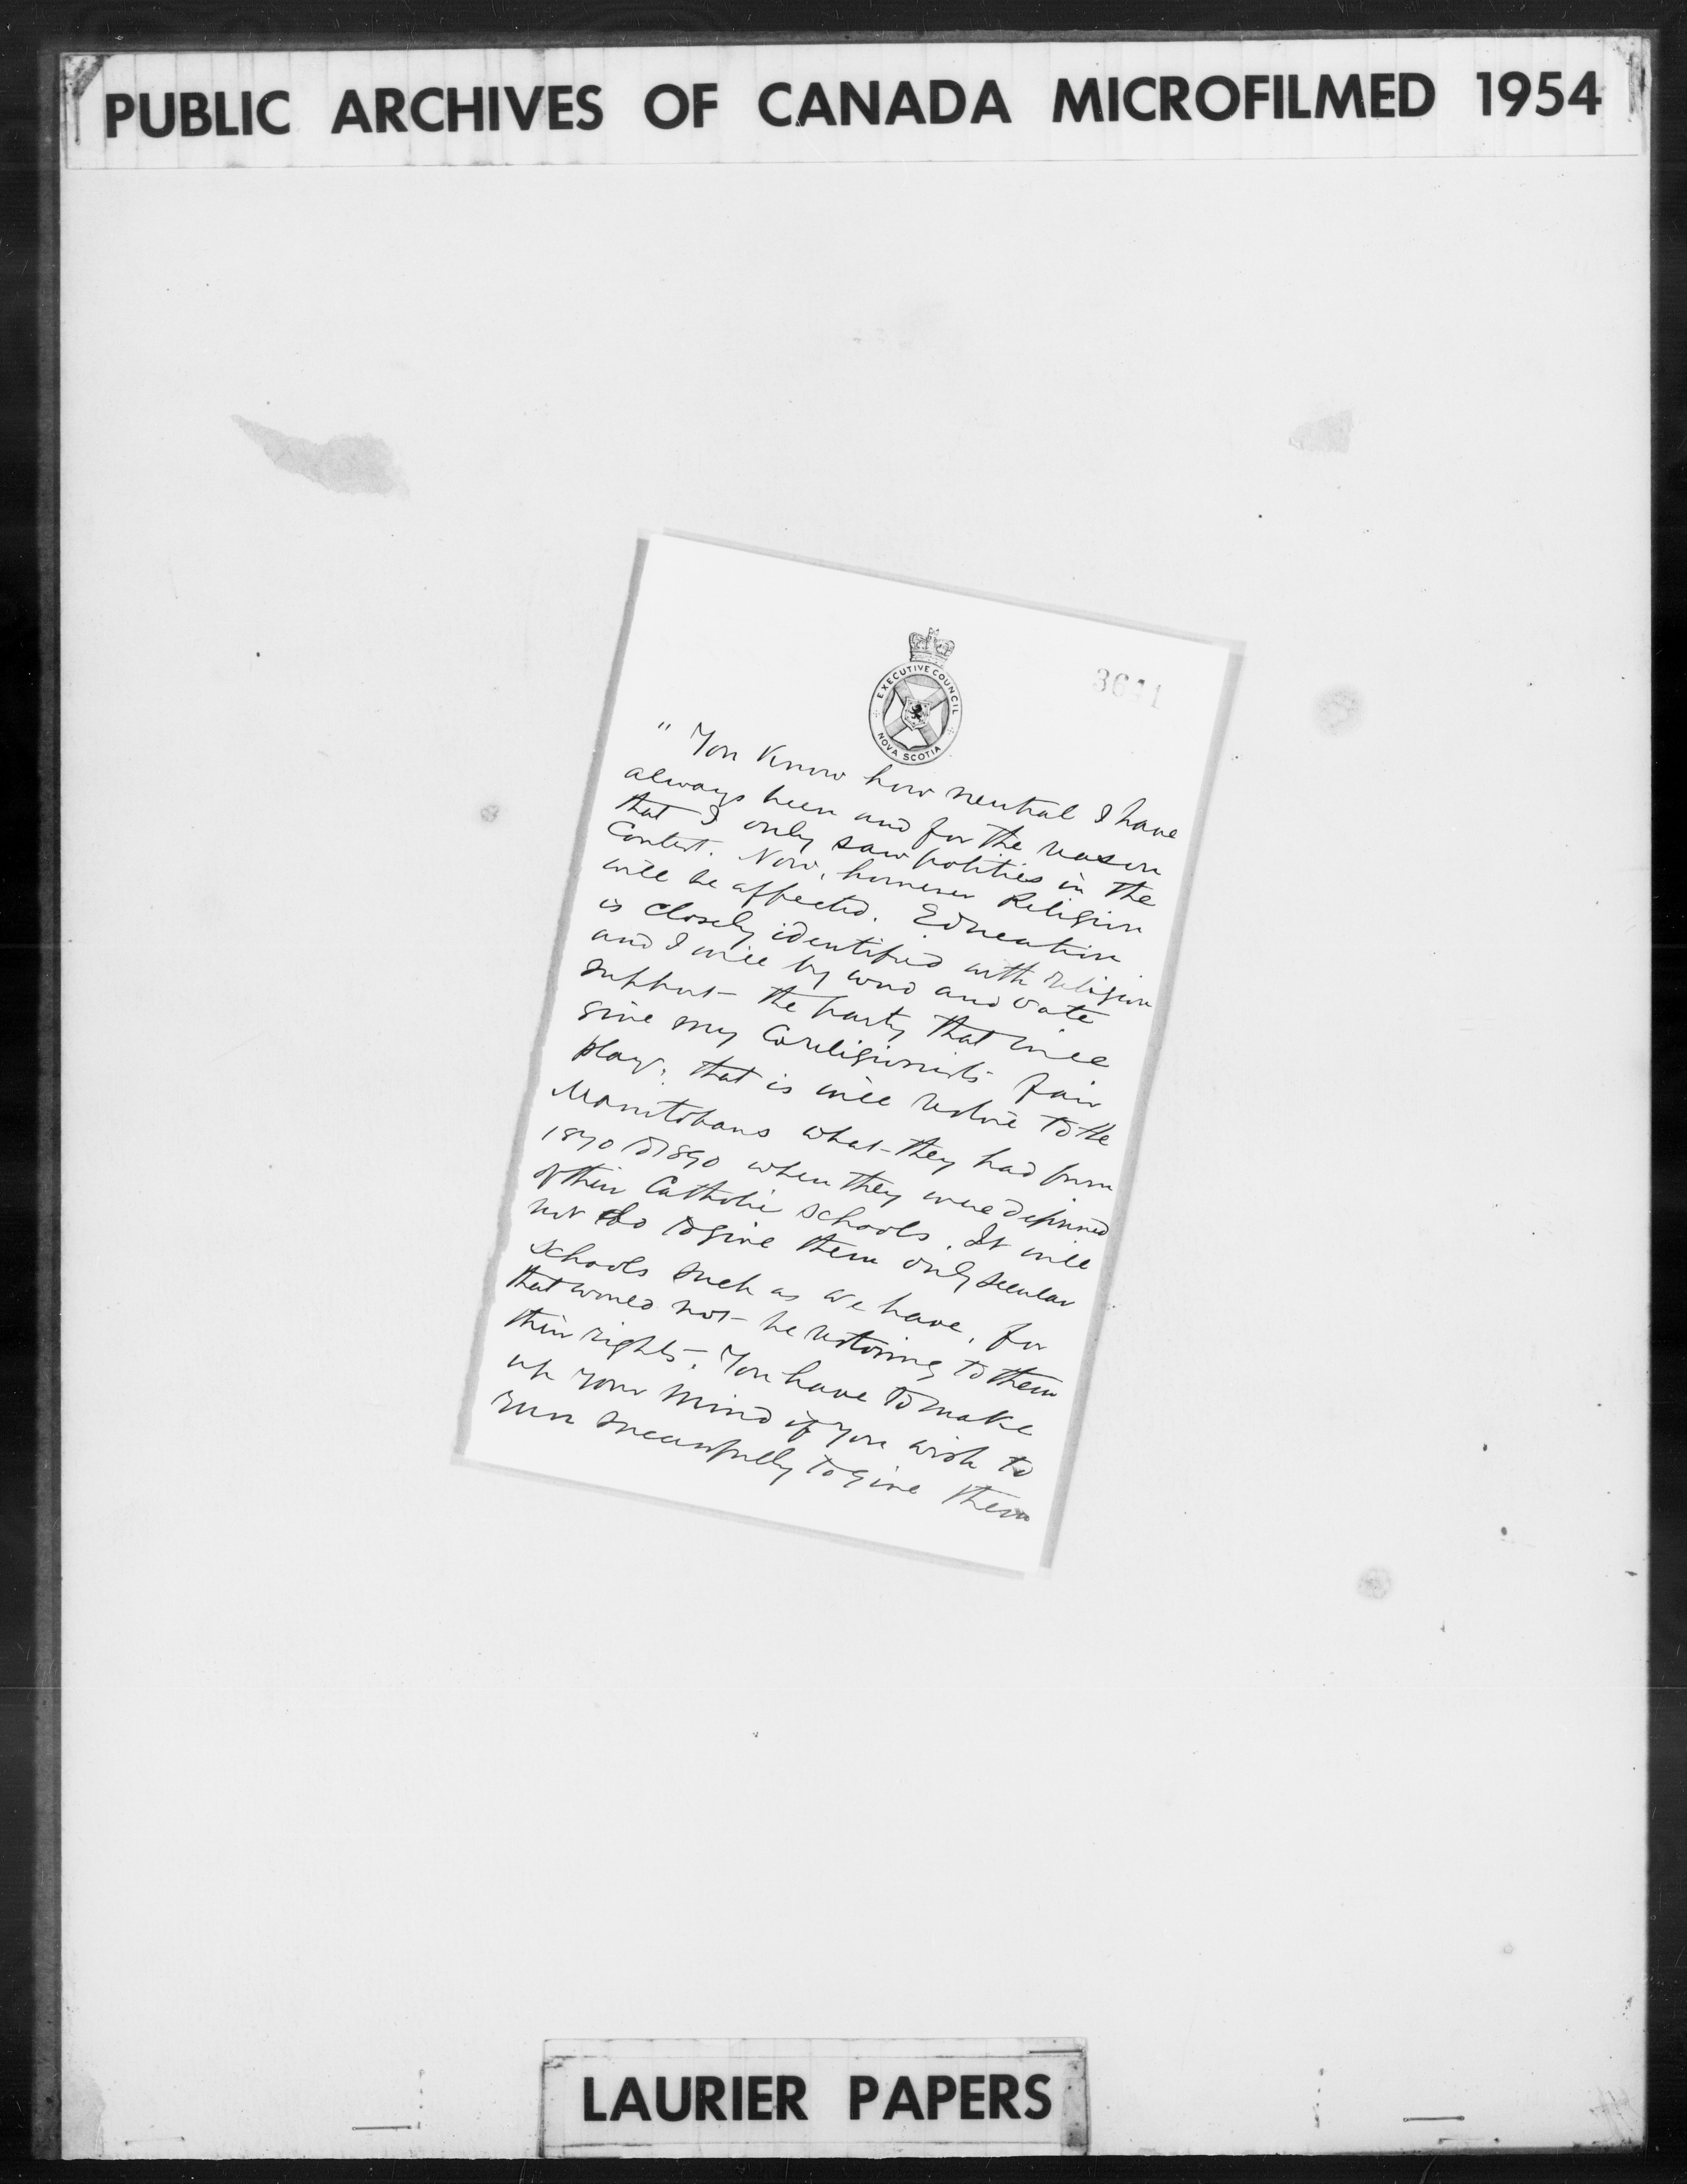 PUBLIC ARCHIVES OF CANADA MICROFILMED 1954
EXECUTIVE COUNCIL
NOVA SCOTIA
3641
" You know how neutral I have
always been and for the reason
that I only saw politics in the
Contest. Now, however Religion
will be affected. Education
is closely identified with religion
and I will by word and vote
support the party that will
give my Coreligionists fair
play; that is will restore to the
Manitobans what they had from
1870 to 1890 when they were deprived
of their Catholic Schools. It will
not do to give them only secular
schools such as we have, for
that would not be restoring to them
their rights. You have to make
up your mind if you wish to
run successfully to give them
LAURIER PAPERS